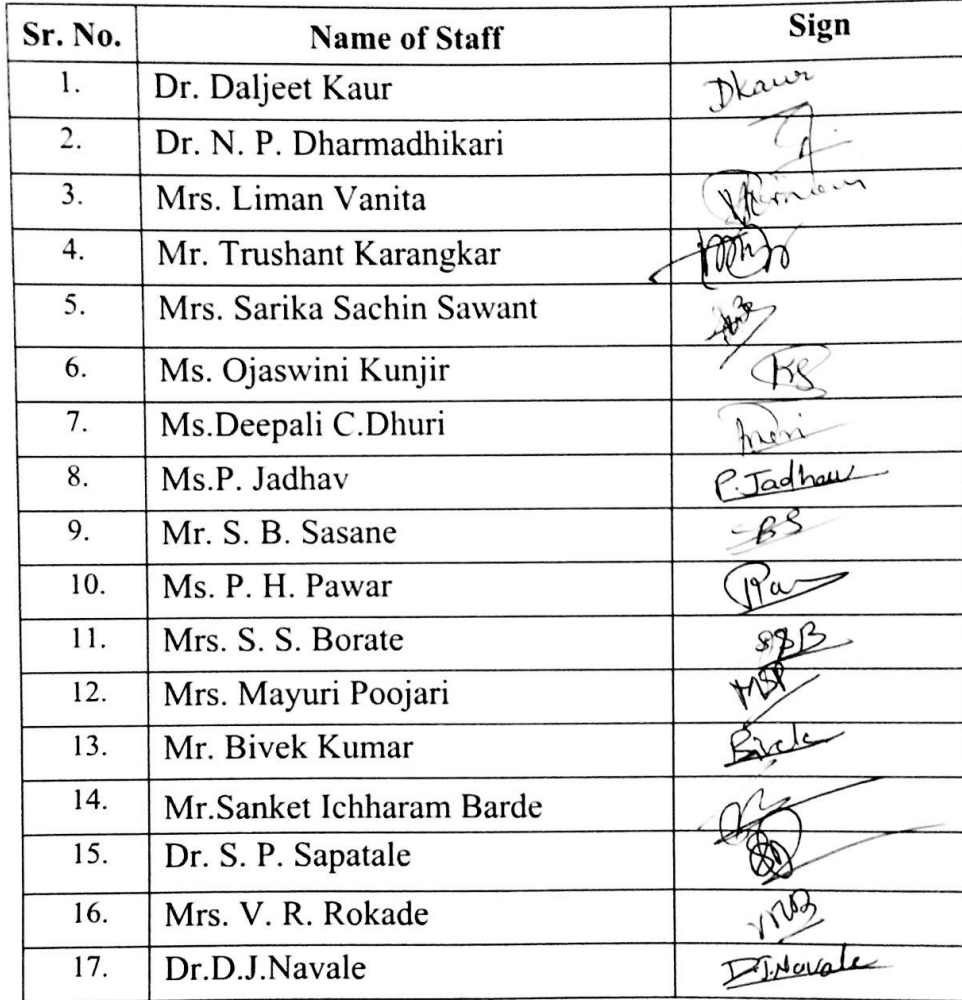 Sr. No. Name of Staff Sign
1. Dr. Daljeet Kaur Dkaur
2. Dr. N. P. Dharmadhikari
3. Mrs. Liman Vanita
4. Mr. Trushant Karangkar
5. Mrs. Sarika Sachin Sawant
6. Ms. Ojaswini Kunjir
7. Ms.Deepali C.Dhuri
8. Ms.P. Jadhav P.Jadhav
9. Mr. S. B. Sasane
10. Ms. P. H. Pawar
11. Mrs. S. S. Borate SSB
12. Mrs. Mayuri Poojari MSP
13. Mr. Bivek Kumar Bivek
14. Mr.Sanket Ichharam Barde
15. Dr. S. P. Sapatale
16. Mrs. V. R. Rokade
17. Dr.D.J.Navale D.J.Navale